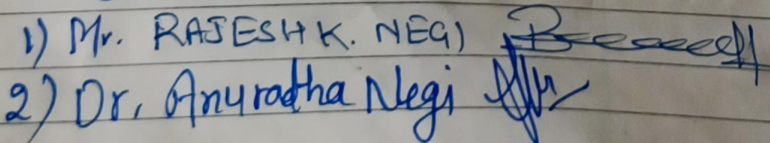 1) Mr. RAJESH K. NEGI
2) Dr. Anuradha Negi